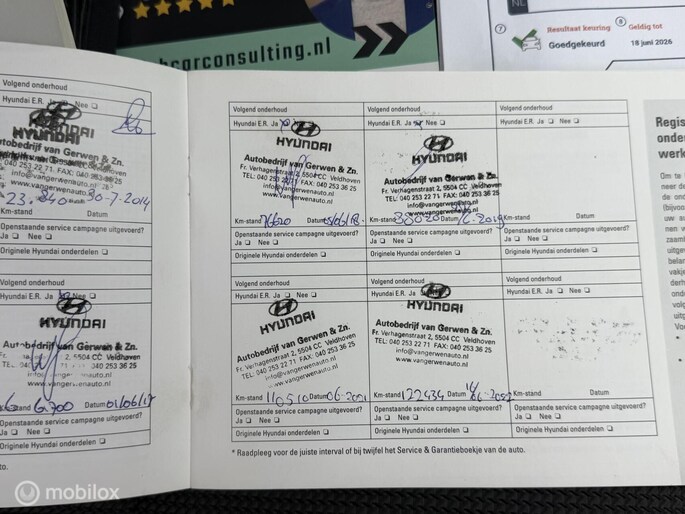 carconsulting.nl
NL
7
Resultaat keuring
Goedgekeurd
8
Geldig tot
18 juni 2026
Volgend onderhoud
Hyundai E.R. Ja Nee
HYUNDAI
Autobedrijf van Gerwen & Zn.
TEL: 040 253 22 71 FAX: 040 253 36 25
www.vangerwenauto.nl
23.840 30-7-2014
Km-stand Datum
Openstaande service campagne uitgevoerd?
Ja Nee
Originele Hyundai onderdelen
Volgend onderhoud
Hyundai E.R. Ja Nee
HYUNDAI
Autobedrijf van Gerwen & Zn.
Fr. Verhagenstraat 2, 5504 CC Veldhoven
TEL: 040 253 22 71 FAX: 040 253 36 25
info@vangerwenauto.nl
www.vangerwenauto.nl
Datum 01/06/17
Openstaande service campagne uitgevoerd?
Ja Nee
Originele Hyundai onderdelen
Volgend onderhoud
Hyundai E.R. Ja Nee
HYUNDAI
Autobedrijf van Gerwen & Zn.
Fr. Verhagenstraat 2, 5504 CC Veldhoven
TEL: 040 253 22 71 FAX: 040 253 36 25
info@vangerwenauto.nl
www.vangerwenauto.nl
Km-stand 76620 Datum
Openstaande service campagne uitgevoerd?
Ja Nee
Originele Hyundai onderdelen
Volgend onderhoud
Hyundai E.R. Ja Nee
HYUNDAI
Autobedrijf van Gerwen & Zn.
Fr. Verhagenstraat 2, 5504 CC Veldhoven
TEL: 040 253 22 71 FAX: 040 253 36 25
info@vangerwenauto.nl
www.vangerwenauto.nl
Km-stand Datum
Openstaande service campagne uitgevoerd?
Ja Nee
Originele Hyundai onderdelen
Volgend onderhoud
Hyundai E.R. Ja Nee
Km-stand Datum
Openstaande service campagne uitgevoerd?
Ja Nee
Originele Hyundai onderdelen
Volgend onderhoud
Hyundai E.R. Ja Nee
HYUNDAI
Autobedrijf van Gerwen & Zn.
Fr. Verhagenstraat 2, 5504 CC Veldhoven
TEL: 040 253 22 71 FAX: 040 253 36 25
info@vangerwenauto.nl
www.vangerwenauto.nl
Km-stand 110510 Datum 06-2021
Openstaande service campagne uitgevoerd?
Ja Nee
Originele Hyundai onderdelen
Volgend onderhoud
Hyundai E.R. Ja Nee
HYUNDAI
Autobedrijf van Gerwen & Zn.
Fr. Verhagenstraat 2, 5504 CC Veldhoven
TEL: 040 253 22 71 FAX: 040 253 36 25
info@vangerwenauto.nl
www.vangerwenauto.nl
Km-stand 122434 Datum
Openstaande service campagne uitgevoerd?
Ja Nee
Originele Hyundai onderdelen
Volgend onderhoud
Hyundai E.R. Ja Nee
Km-stand Datum
Openstaande service campagne uitgevoerd?
Ja Nee
Originele Hyundai onderdelen
* Raadpleeg voor de juiste interval of bij twijfel het Service & Garantieboekje van de auto.
Regis
onde
werk
Om te
neer de
de ond
(bijvoo
uw au
mobilox